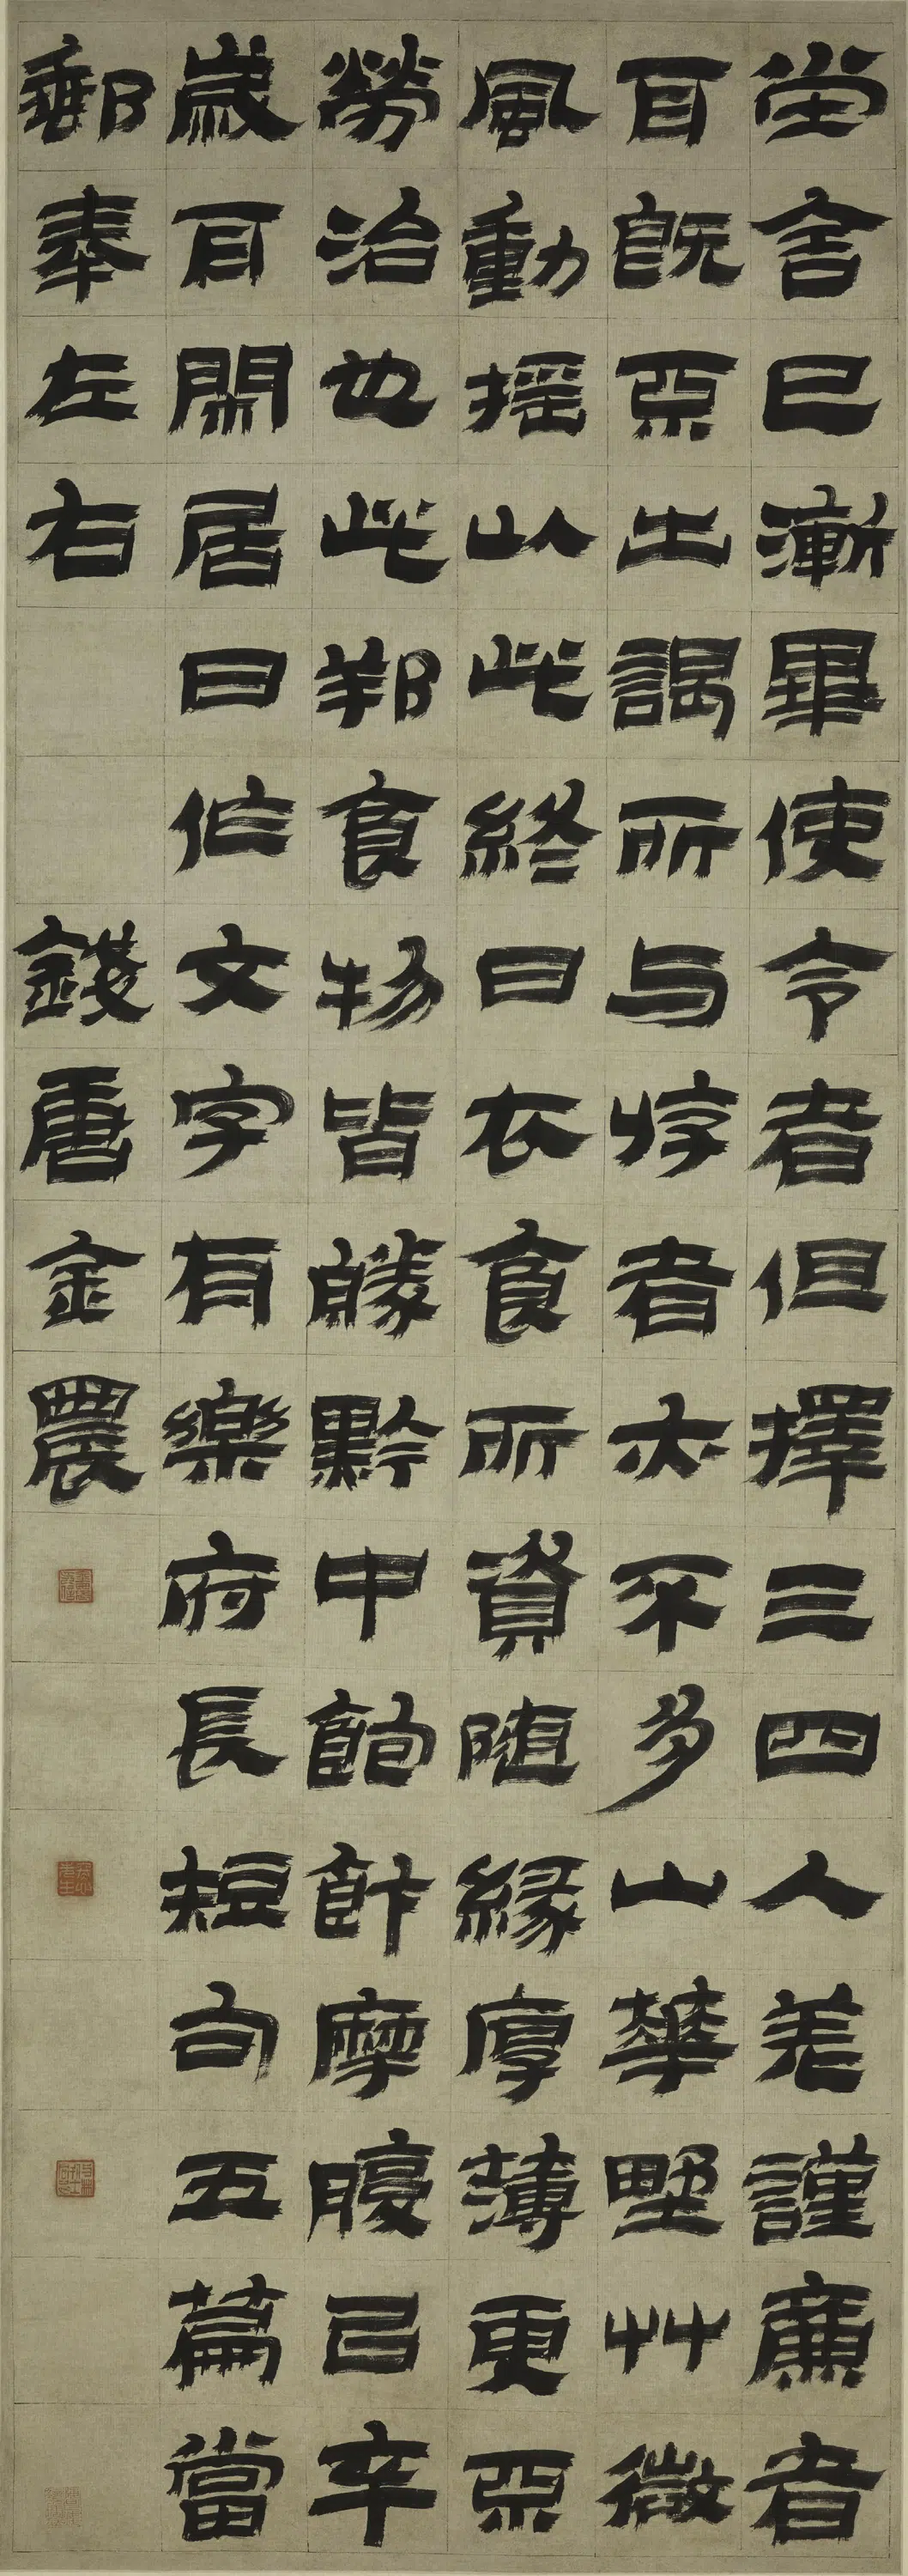 堂舍已漸畢使令者但擇三四人差謹廉者
耳既無出謁所与惇者亦不多山華野艸微
風動搖以此終日衣食所資随緣厚薄更無
勞治也此邦食物皆勝黔中飽飰摩腹已卒
歲耳閑居日作文字有樂府長短句五篇當
郵奉左右 錢唐金農